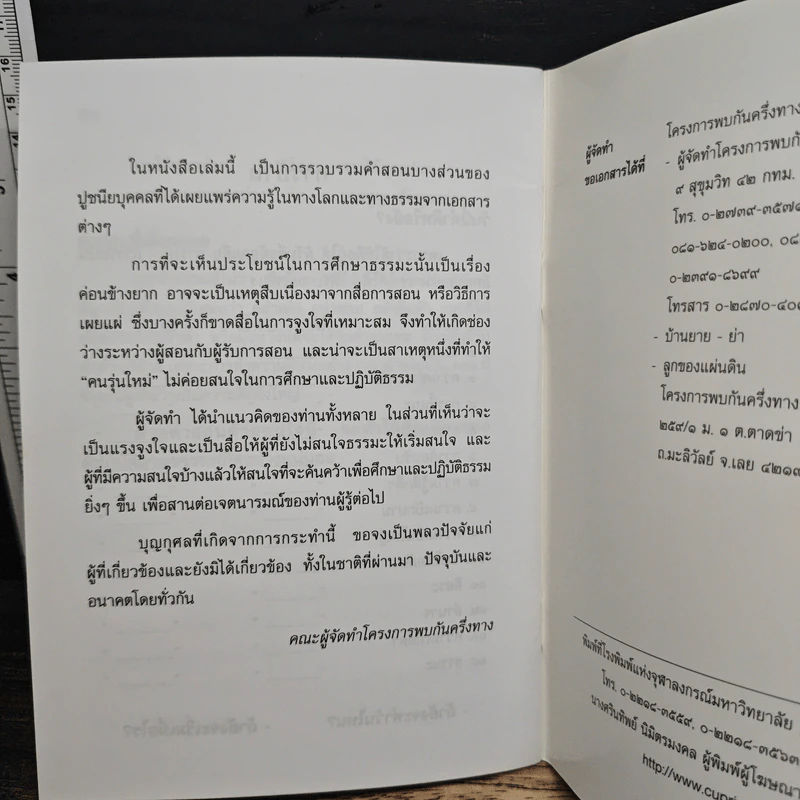 ในหนังสือเล่มนี้ เป็นการรวบรวมคำสอนบางส่วนของ
ปูชนียบุคคลที่ได้เผยแพร่ความรู้ในทางโลกและทางธรรมจากเอกสาร
ต่างๆ
การที่จะเห็นประโยชน์ในการศึกษาธรรมะนั้นเป็นเรื่อง
ค่อนข้างยาก อาจจะเป็นเหตุสืบเนื่องมาจากสื่อการสอน หรือวิธีการ
เผยแผ่ ซึ่งบางครั้งก็ขาดสื่อในการจูงใจที่เหมาะสม จึงทำให้เกิดช่อง
ว่างระหว่างผู้สอนกับผู้รับการสอน และน่าจะเป็นสาเหตุหนึ่งที่ทำให้
“คนรุ่นใหม่” ไม่ค่อยสนใจในการศึกษาและปฏิบัติธรรม
ผู้จัดทำ ได้นำแนวคิดของท่านทั้งหลาย ในส่วนที่เห็นว่าจะ
เป็นแรงจูงใจและเป็นสื่อให้ผู้ที่ยังไม่สนใจธรรมะให้เริ่มสนใจ และ
ผู้ที่มีความสนใจบ้างแล้วให้สนใจที่จะค้นคว้าเพื่อศึกษาและปฏิบัติธรรม
ยิ่งๆ ขึ้น เพื่อสานต่อเจตนารมณ์ของท่านผู้รู้ต่อไป
บุญกุศลที่เกิดจากการกระทำนี้ ขอจงเป็นพลวปัจจัยแก่
ผู้ที่เกี่ยวข้องและยังมิได้เกี่ยวข้อง ทั้งในชาติที่ผ่านมา ปัจจุบันและ
อนาคตโดยทั่วกัน
คณะผู้จัดทำโครงการพบกันครึ่งทาง
ผู้จัดทำ
ขอเอกสารได้ที่
โครงการพบกันครึ่งทาง
- ผู้จัดทำโครงการพบกั
๙ สุขุมวิท ๔๒ กทม.
โทร. ๐-๒๗๓๙-๓๕๗๑
๐๘๑-๖๒๔-๐๒๐๐, ๐๘
๐-๒๓๙๑-๘๖๙๙
โทรสาร ๐-๒๘๗๐-๔๐๑
- บ้านยาย - ย่า
- ลูกของแผ่นดิน
โครงการพบกันครึ่งทาง
๒๕๙/๑ ม. ๑ ต.ตาดข่า
ถ.มะลิวัลย์ จ.เลย ๔๒๑๙
พิมพ์ที่โรงพิมพ์แห่งจุฬาลงกรณ์มหาวิทยาลัย
โทร. ๐-๒๒๑๘-๓๕๕๙, ๐-๒๒๑๘-๓๕๖๓
นางศรินทิพย์ นิมิตรมงคล ผู้พิมพ์ผู้โฆษณา
http://www.cupri